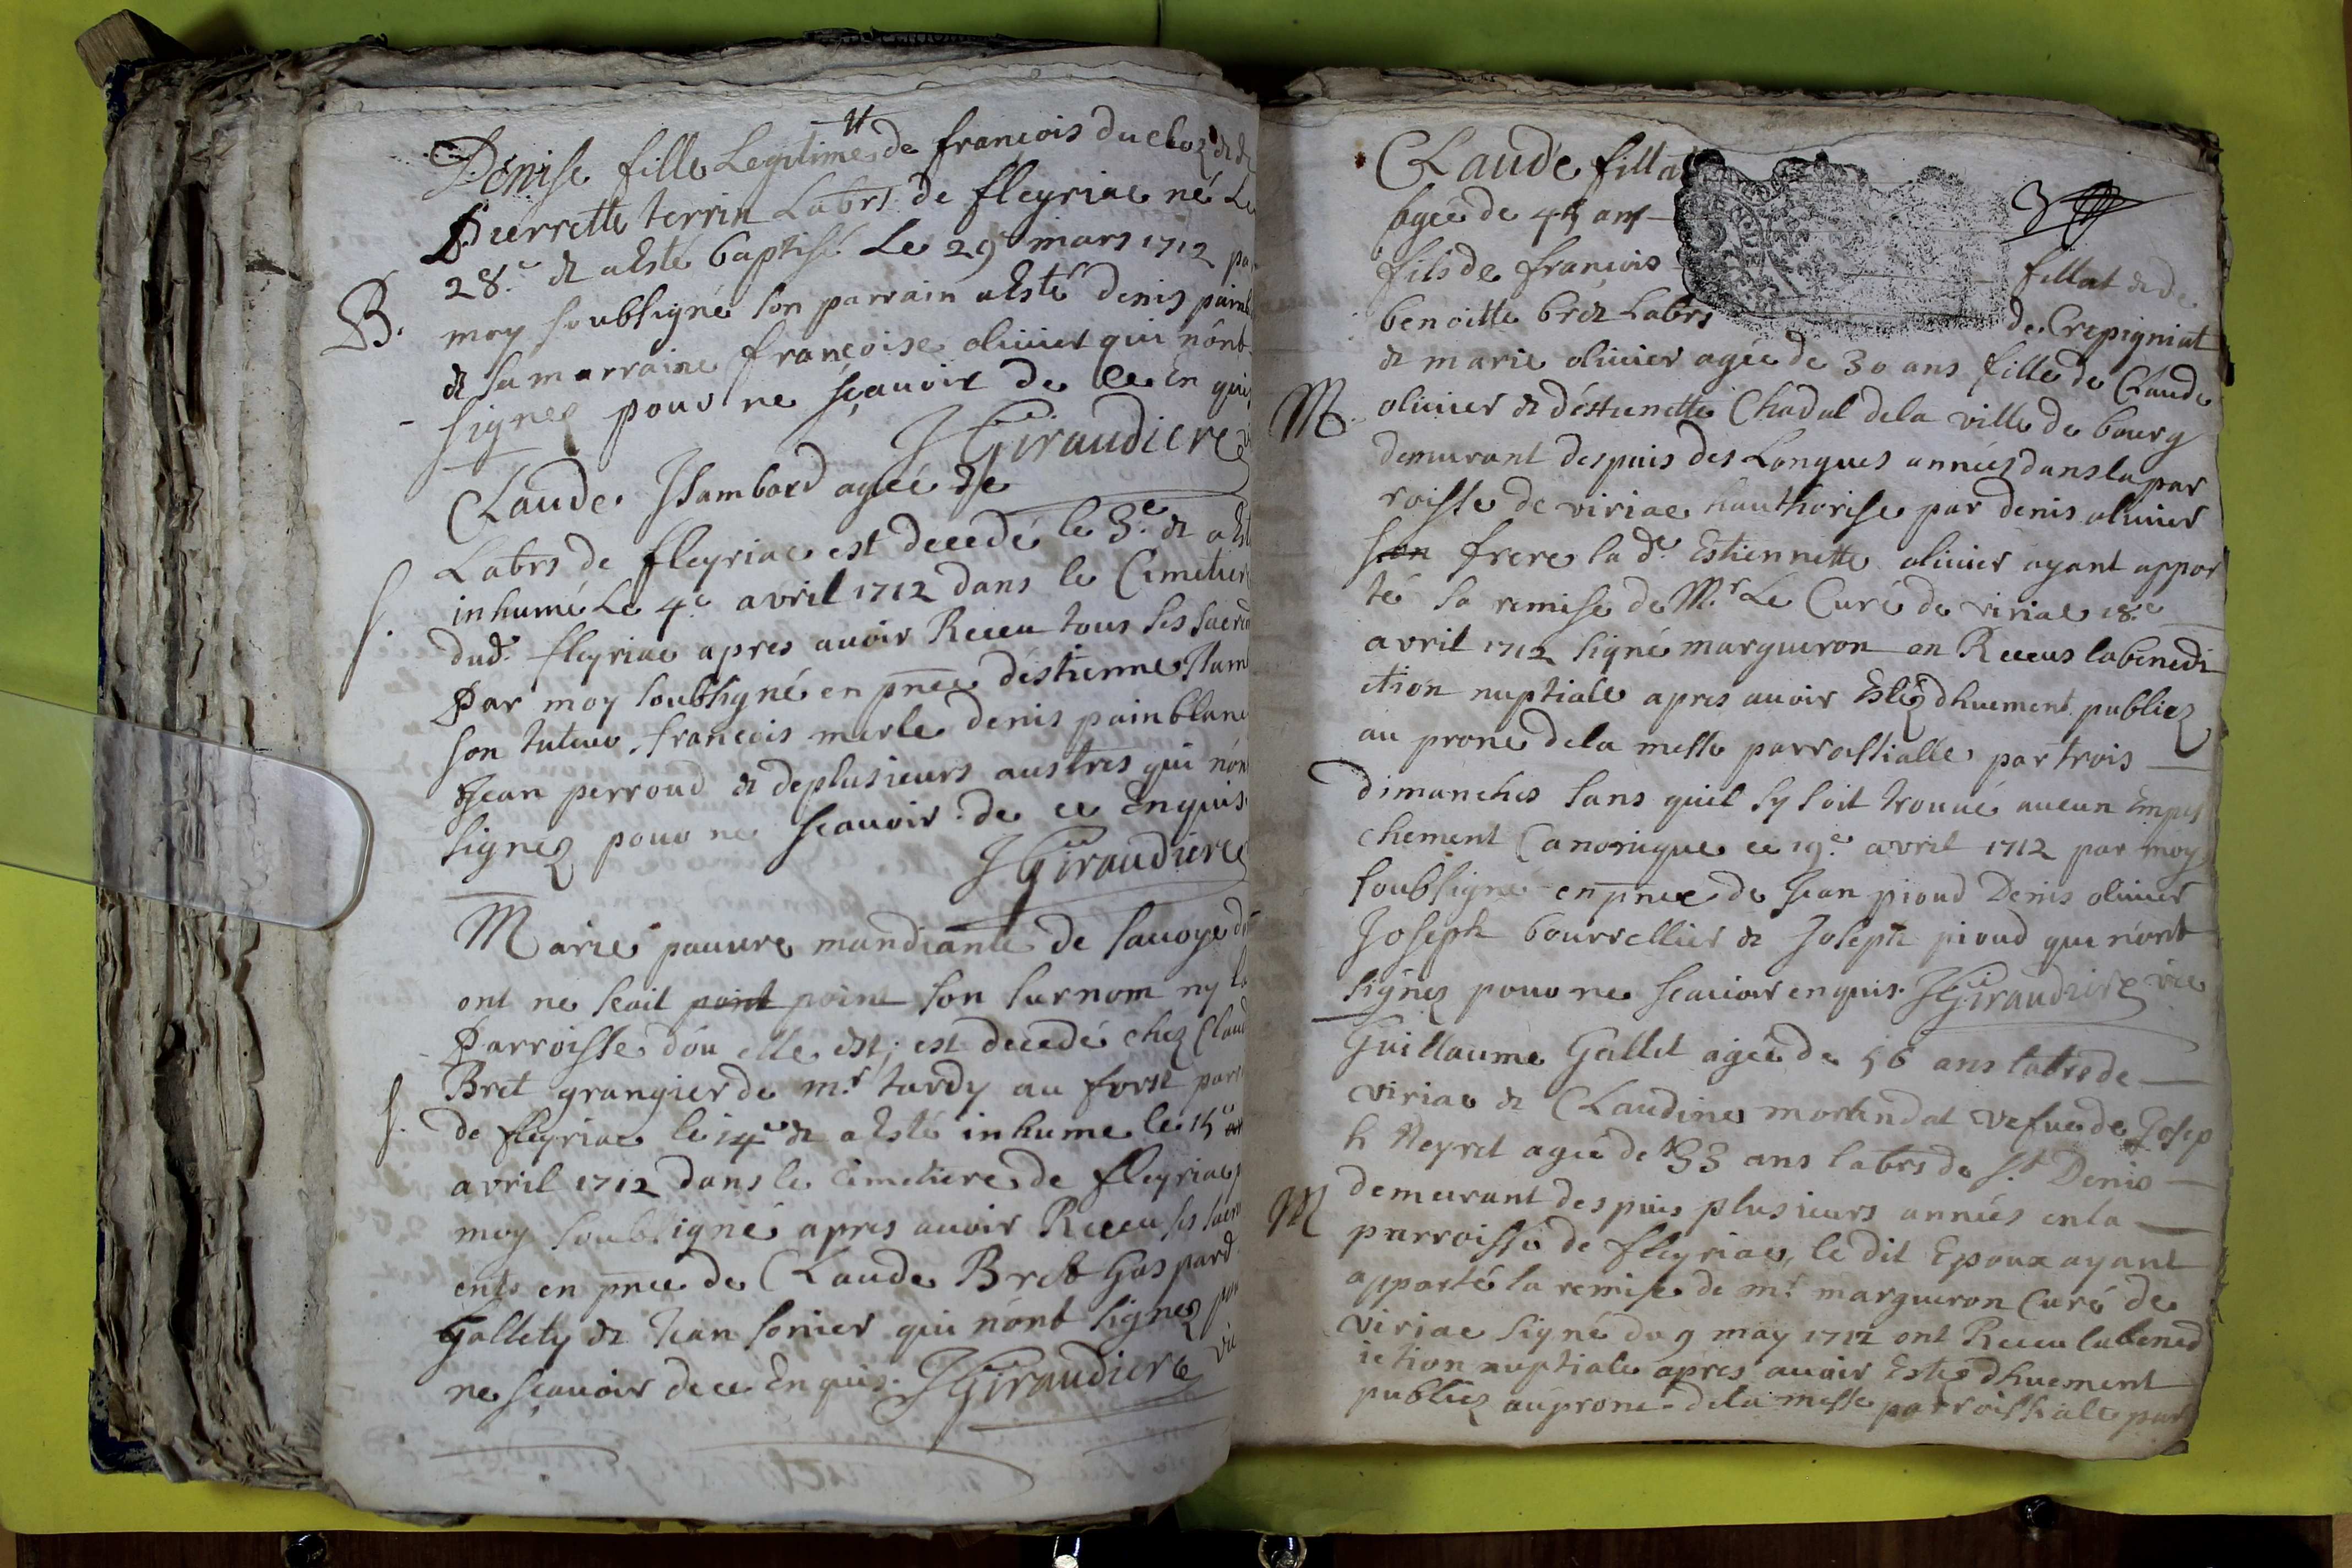 Denise fille Legitime de francois ducloz & de
Pierrette terrin Labrs de fleyriae né Le
28.e & a esté baptisé Le 29e mars 1712 par
B. moy soubsigné son parrain a esté denis painb
& sa marraine françoise olivier qui n'ont
signez pour ne sçavoir de ce en quis
JGiraudiere
Claude Isambard ageé de
Labrs de fleyriae est decedé le 3.e & a est
S. inhumé Le 4.e avril 1712 dans le Cimetier
dud.t fleyriae apres avoir Receu tous ses sacrem
Par moy soubsigné en pnce d'estienne Isamb
son tuteur, francois merle denis painblanc
Jean perroud & de plusieurs austres qui n'ont
signez pour ne scavoir de ce Enquis
JGiraudiere
Marie pauvre mandiante de savoye d
ont ne scait point point son surnom ny la
Parroisse d'ou elle est; est decedé chez Claud
Bret grangier de m.r tardy au forst parr
S. de fleyriae le 14e & a esté inhume le 15e
avril 1712 dans le Cimetiere de fleyriae p
moy soubsigné apres avoir Receu ses sacrem
ents en pnce de Claude Bret Gaspard
Gallety & Jean sonier qui n'ont signez pour
ne sçavoir de ce Enquis. JGiraudiere vic
Claude filla
agée de 45 ans
fils de francois fillat & de
benoitte brez Labrs de Crepigniat
& marie olivier ageé de 30 ans fille de Claude
M. olivier & d'estiennette Chadal de la ville de bourg
demurant despuis des Longues années dans la par
roisse de viriae hauthorise par denis olivier
son frere la d.e Estiennette olivier ayant appor
té sa remise de M.r Le Curé de viriae 18.e
avril 1712 signé margueron on Receus la benedi
ction nuptiale apres avoir Estez dhuement publiez
au prone de la messe parrossialle par trois
dimanches sans quil sy soit trouvé aucun Empes
chement Canonique ce 19.e avril 1712 par moy
soubsigné en pnce de Jean pioud Denis olivier
Joseph bourrellier & Joseph pioud qui n'ont
signez pour ne scavoir enquis. JGiraudiere vic
Guillaume Gallet ageé de 56 ans labrs de
viriae & Claudine mortendat vefue de Josep
h Neyret agée de 33 ans labrs de S.t Denis
M demeurant despuis plusieurs années en la
parroisse de fleyriae, le dit Epoux ayant
apporté la remise de m.r margueron Curé de
viriae signé du 9 may 1712 ont Receu la bened
iction nuptiale apres avoir Estez dhuement
publiez au prone de la messe parroissiale par